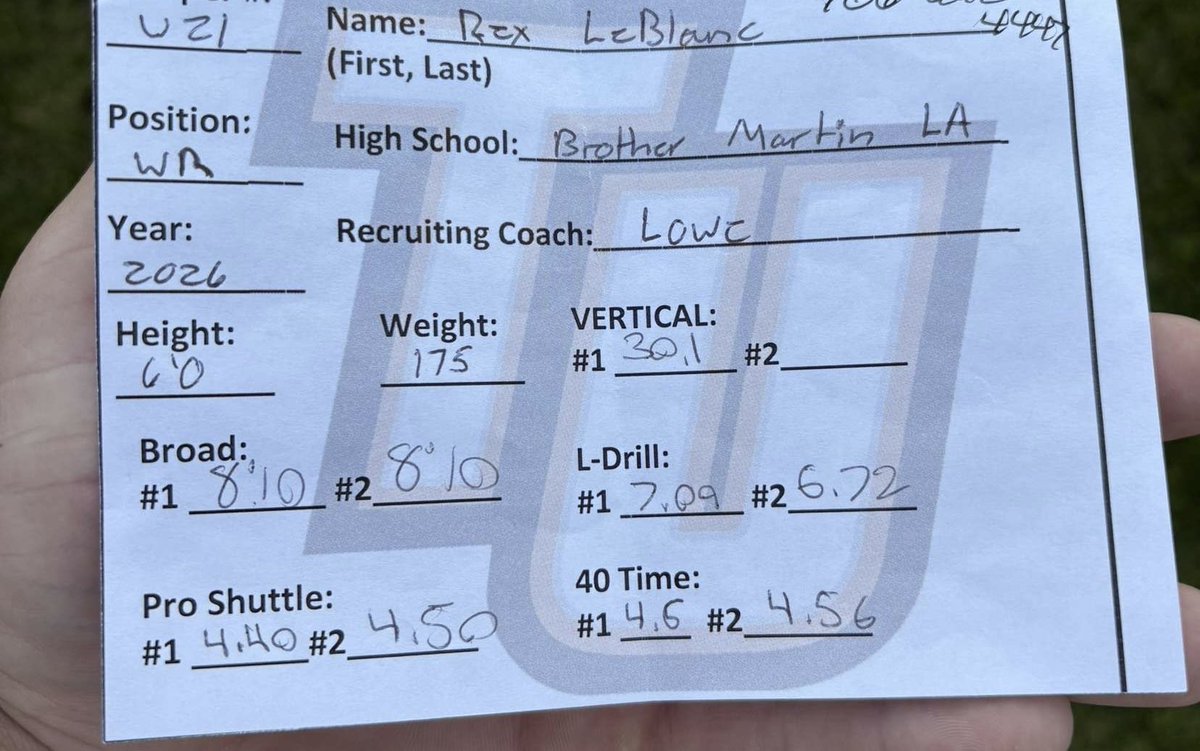 UZI Name: Rex LeBlanc
(First, Last)
Position: High School: Brother Martin LA
WR
Year: Recruiting Coach: Lowe
2026
Height: Weight: VERTICAL:
6'0 175 #1 30.1 #2
Broad: L-Drill:
#1 8'10 #2 8'10 #1 7.09 #2 6.72
Pro Shuttle: 40 Time:
#1 4.40 #2 4.50 #1 4.6 #2 4.56